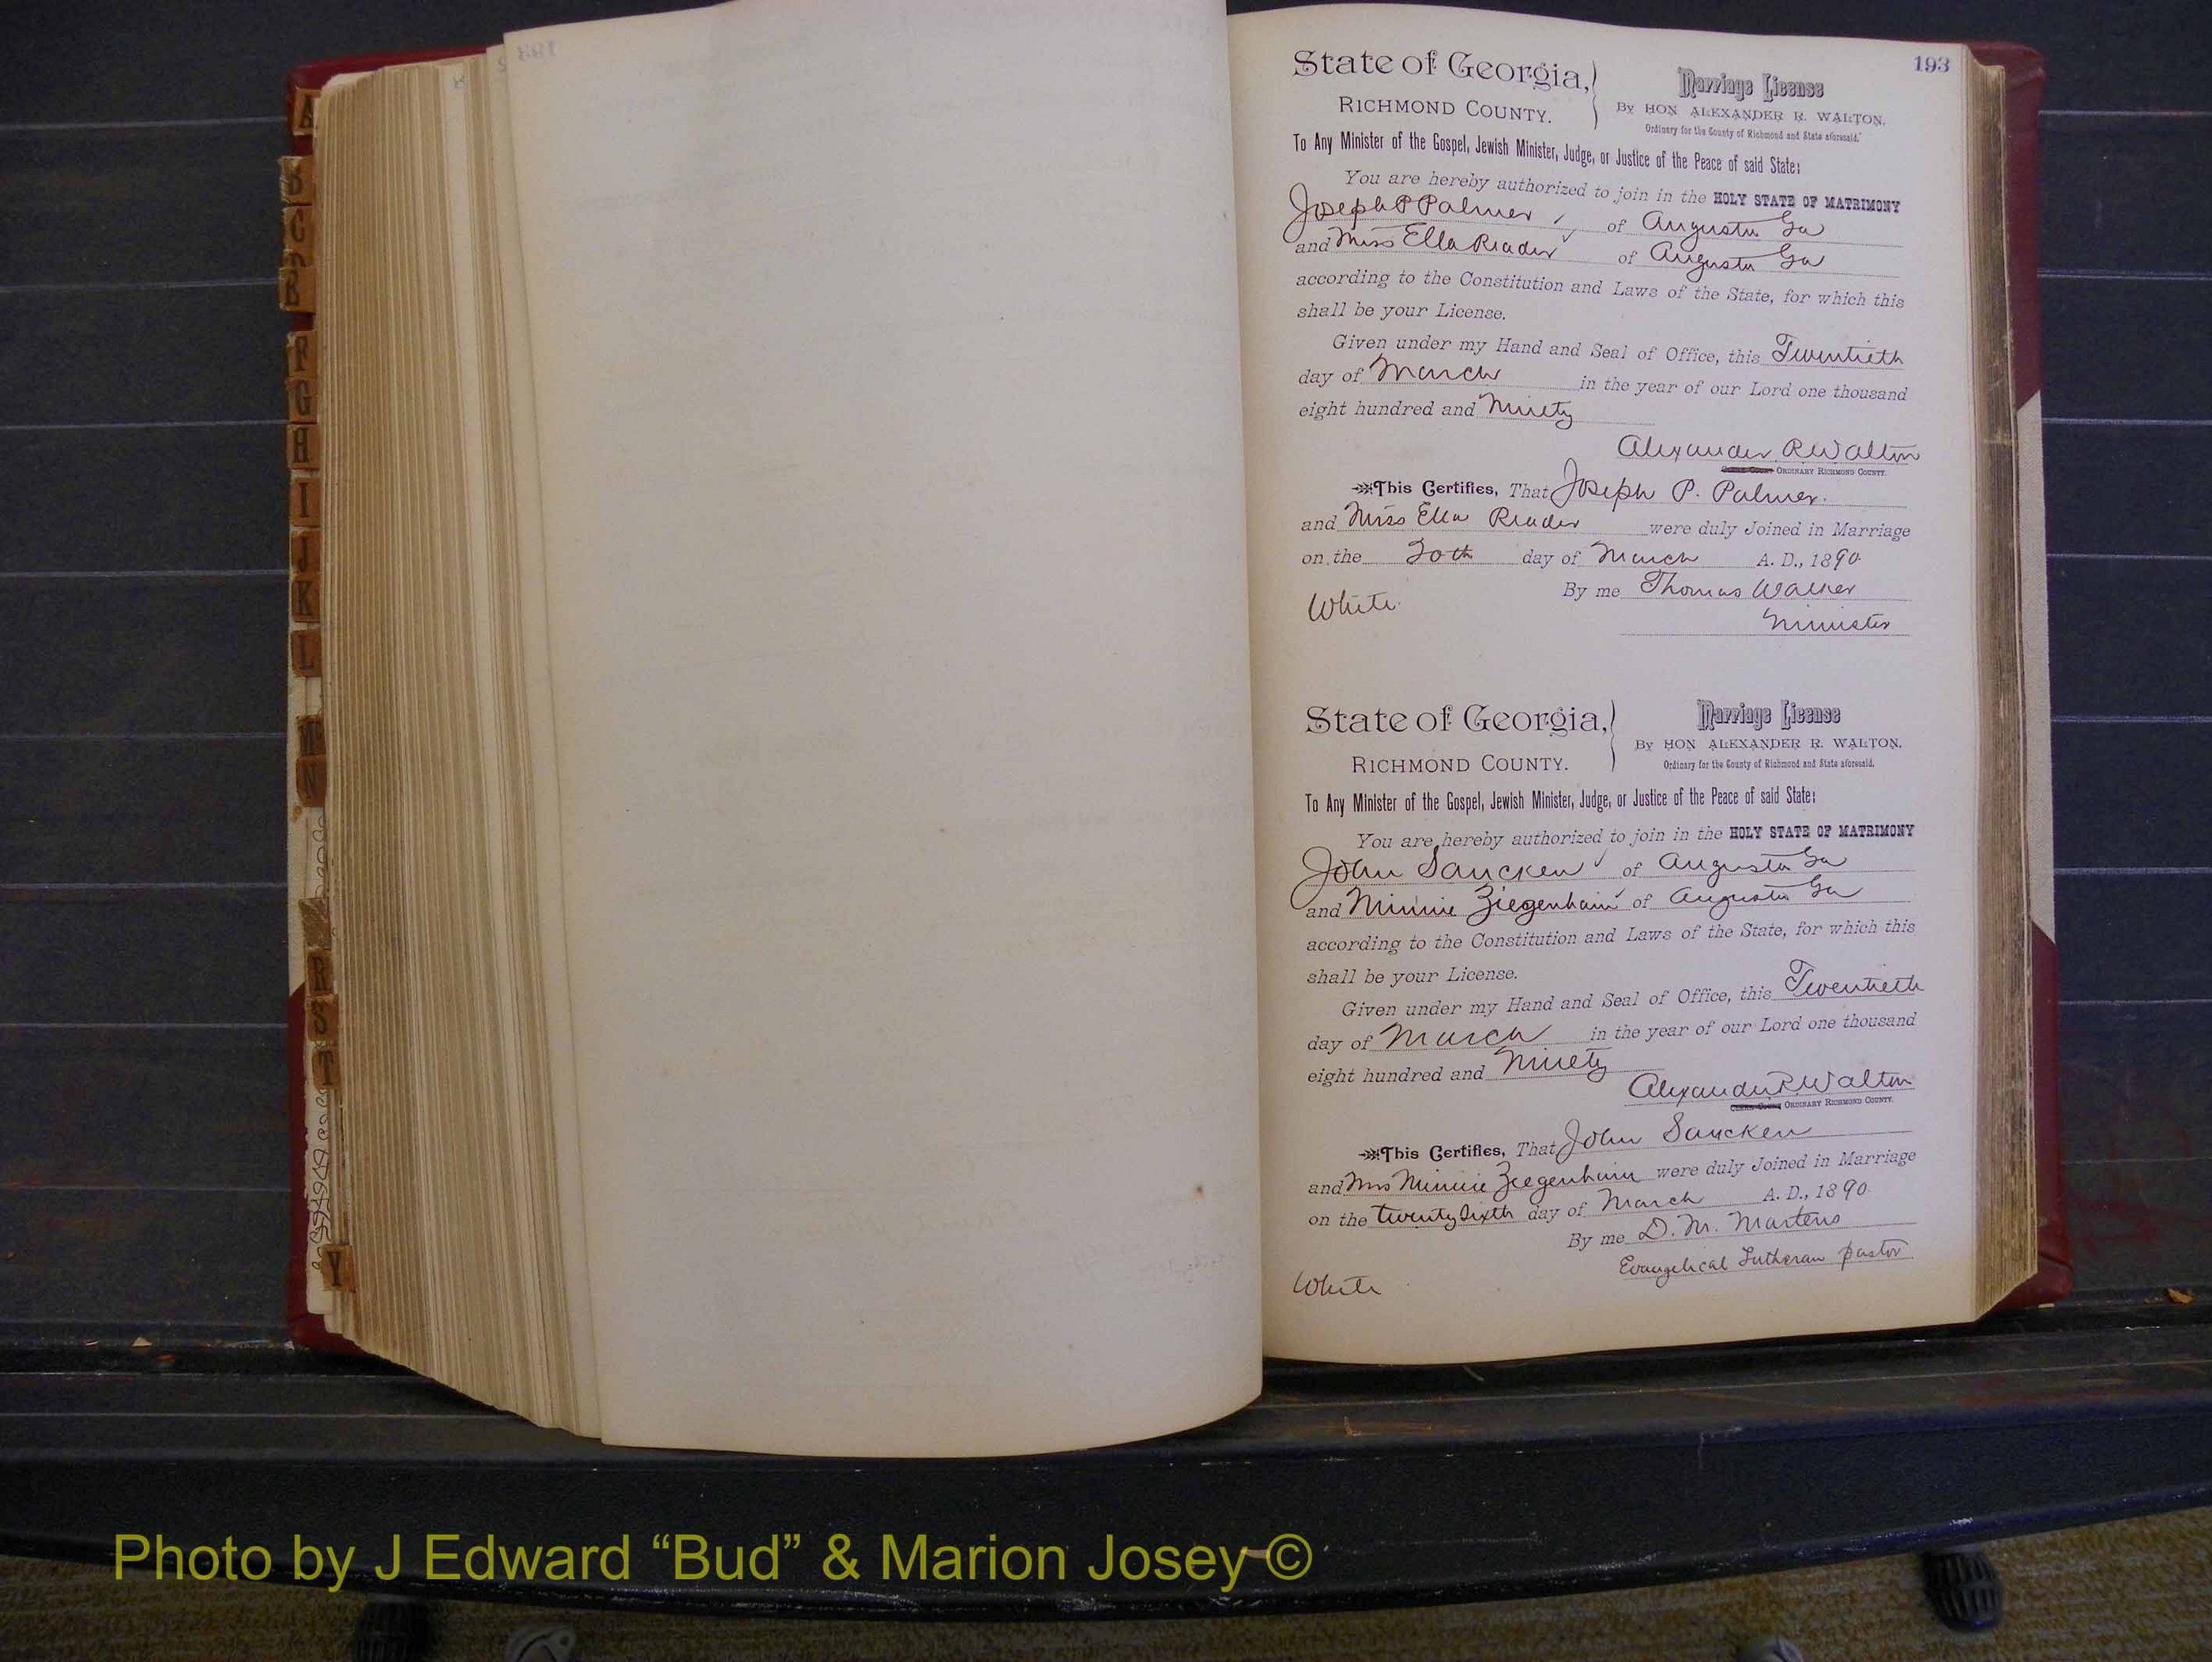 193
State of Georgia,
RICHMOND COUNTY.
Marriage License
By HON ALEXANDER R. WALTON,
Ordinary for the County of Richmond and State aforesaid.
To Any Minister of the Gospel, Jewish Minister, Judge, or Justice of the Peace of said State:
You are hereby authorized to join in the HOLY STATE OF MATRIMONY
Joseph P Palmer of Augusta Ga
and Miss Ella Reader of Augusta Ga
according to the Constitution and Laws of the State, for which this
shall be your License.
Given under my Hand and Seal of Office, this Twentieth
day of March in the year of our Lord one thousand
eight hundred and Ninety
Alexander R Walton
ORDINARY RICHMOND COUNTY.
This Certifies, That Joseph P. Palmer.
and Miss Ella Reader were duly Joined in Marriage
on the 20th day of March A. D., 1890
By me Thomas Walker
White
Minister
State of Georgia,
RICHMOND COUNTY.
Marriage License
By HON ALEXANDER R. WALTON,
Ordinary for the County of Richmond and State aforesaid.
To Any Minister of the Gospel, Jewish Minister, Judge, or Justice of the Peace of said State:
You are hereby authorized to join in the HOLY STATE OF MATRIMONY
John Sancken of Augusta Ga
and Minnie Ziegenhain of Augusta Ga
according to the Constitution and Laws of the State, for which this
shall be your License.
Given under my Hand and Seal of Office, this Twentieth
day of March in the year of our Lord one thousand
eight hundred and Ninety
Alexander R Walton
ORDINARY RICHMOND COUNTY.
This Certifies, That John Sancken
and Mrs Minnie Ziegenhain were duly Joined in Marriage
on the twenty sixth day of March A. D., 1890
By me D. M. Martens
Evangelical Lutheran pastor
White
A
B
C
F
G
H
I
J
K
L
M
N
R
S
T
Y
Photo by J Edward “Bud” & Marion Josey ©